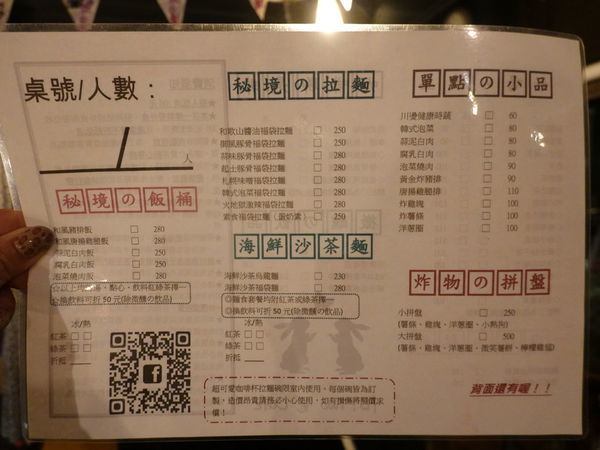 桌號/人數：
人
秘境の飯桶
和風豬排飯 □ 280
和風唐揚雞腿飯 □ 280
蒜泥白肉飯 □ 250
腐乳白肉飯 □ 250
泡菜燒肉飯 □ 280
◎換飲料可折50元(除微醺の飲品)
冰/熱
紅茶 □ □
綠茶 □ □
折抵
秘境の拉麵
和歌山醬油福袋拉麵 □ 250
御風豚骨福袋拉麵 □ 250
蒜味豚骨福袋拉麵 □ 280
起士豚骨福袋拉麵 □ 280
札幌味噌福袋拉麵 □ 280
韓式泡菜福袋拉麵 □ 280
火地獄激辣福袋拉麵 □ 280
素食福袋拉麵（蛋奶素） □ 250
海鮮沙茶麵
海鮮沙茶烏龍麵 □ 230
海鮮沙茶福袋麵 □ 280
◎麵食套餐均附紅茶或綠茶擇一
◎換飲料可折50元(除微醺の飲品)
冰/熱
紅茶 □ □
綠茶 □ □
折抵
超可愛咖啡杯拉麵碗限室內使用，每個碗皆為訂
製，造價昂貴請務必小心使用，如有損傷將照價求
償！
單點の小品
川燙健康時蔬 □ 60
韓式泡菜 □ 80
蒜泥白肉 □ 80
腐乳白肉 □ 80
泡菜燒肉 □ 90
黃金炸豬排 □ 90
唐揚雞腿排 □ 110
炸雞塊 □ 100
炸薯條 □ 100
洋蔥圈 □ 100
炸物の拼盤
小拼盤 □ 250
(薯條、雞塊、洋蔥圈、小熱狗)
大拼盤 □ 500
(薯條、雞塊、洋蔥圈、微笑薯餅、檸檬雞翅)
背面還有喔！！